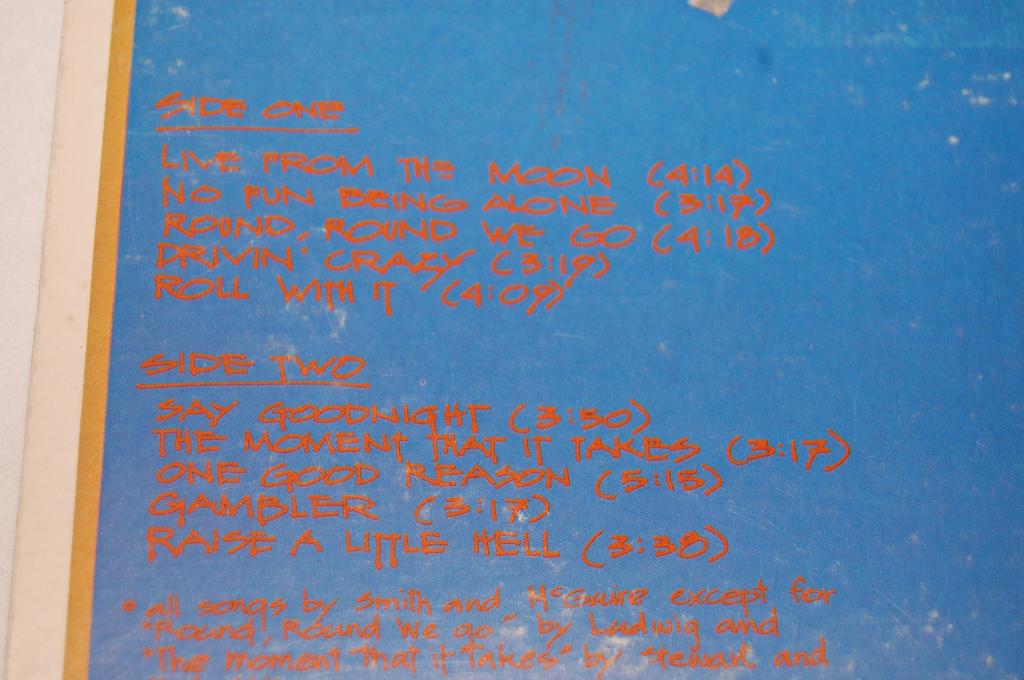 SIDE ONE
LIVE FROM THE MOON (4:14)
NO FUN BEING ALONE (3:17)
ROUND, ROUND WE GO (4:18)
DRIVIN' CRAZY (3:19)
ROLL WITH IT (4:09)
SIDE TWO
SAY GOODNIGHT (3:50)
THE MOMENT THAT IT TAKES (3:17)
ONE GOOD REASON (5:15)
GAMBLER (3:17)
RAISE A LITTLE HELL (3:38)
• all songs by Smith and McGuire except for
"Round, Round We go" by Ludwig and
"The moment that it takes" by Stewart and